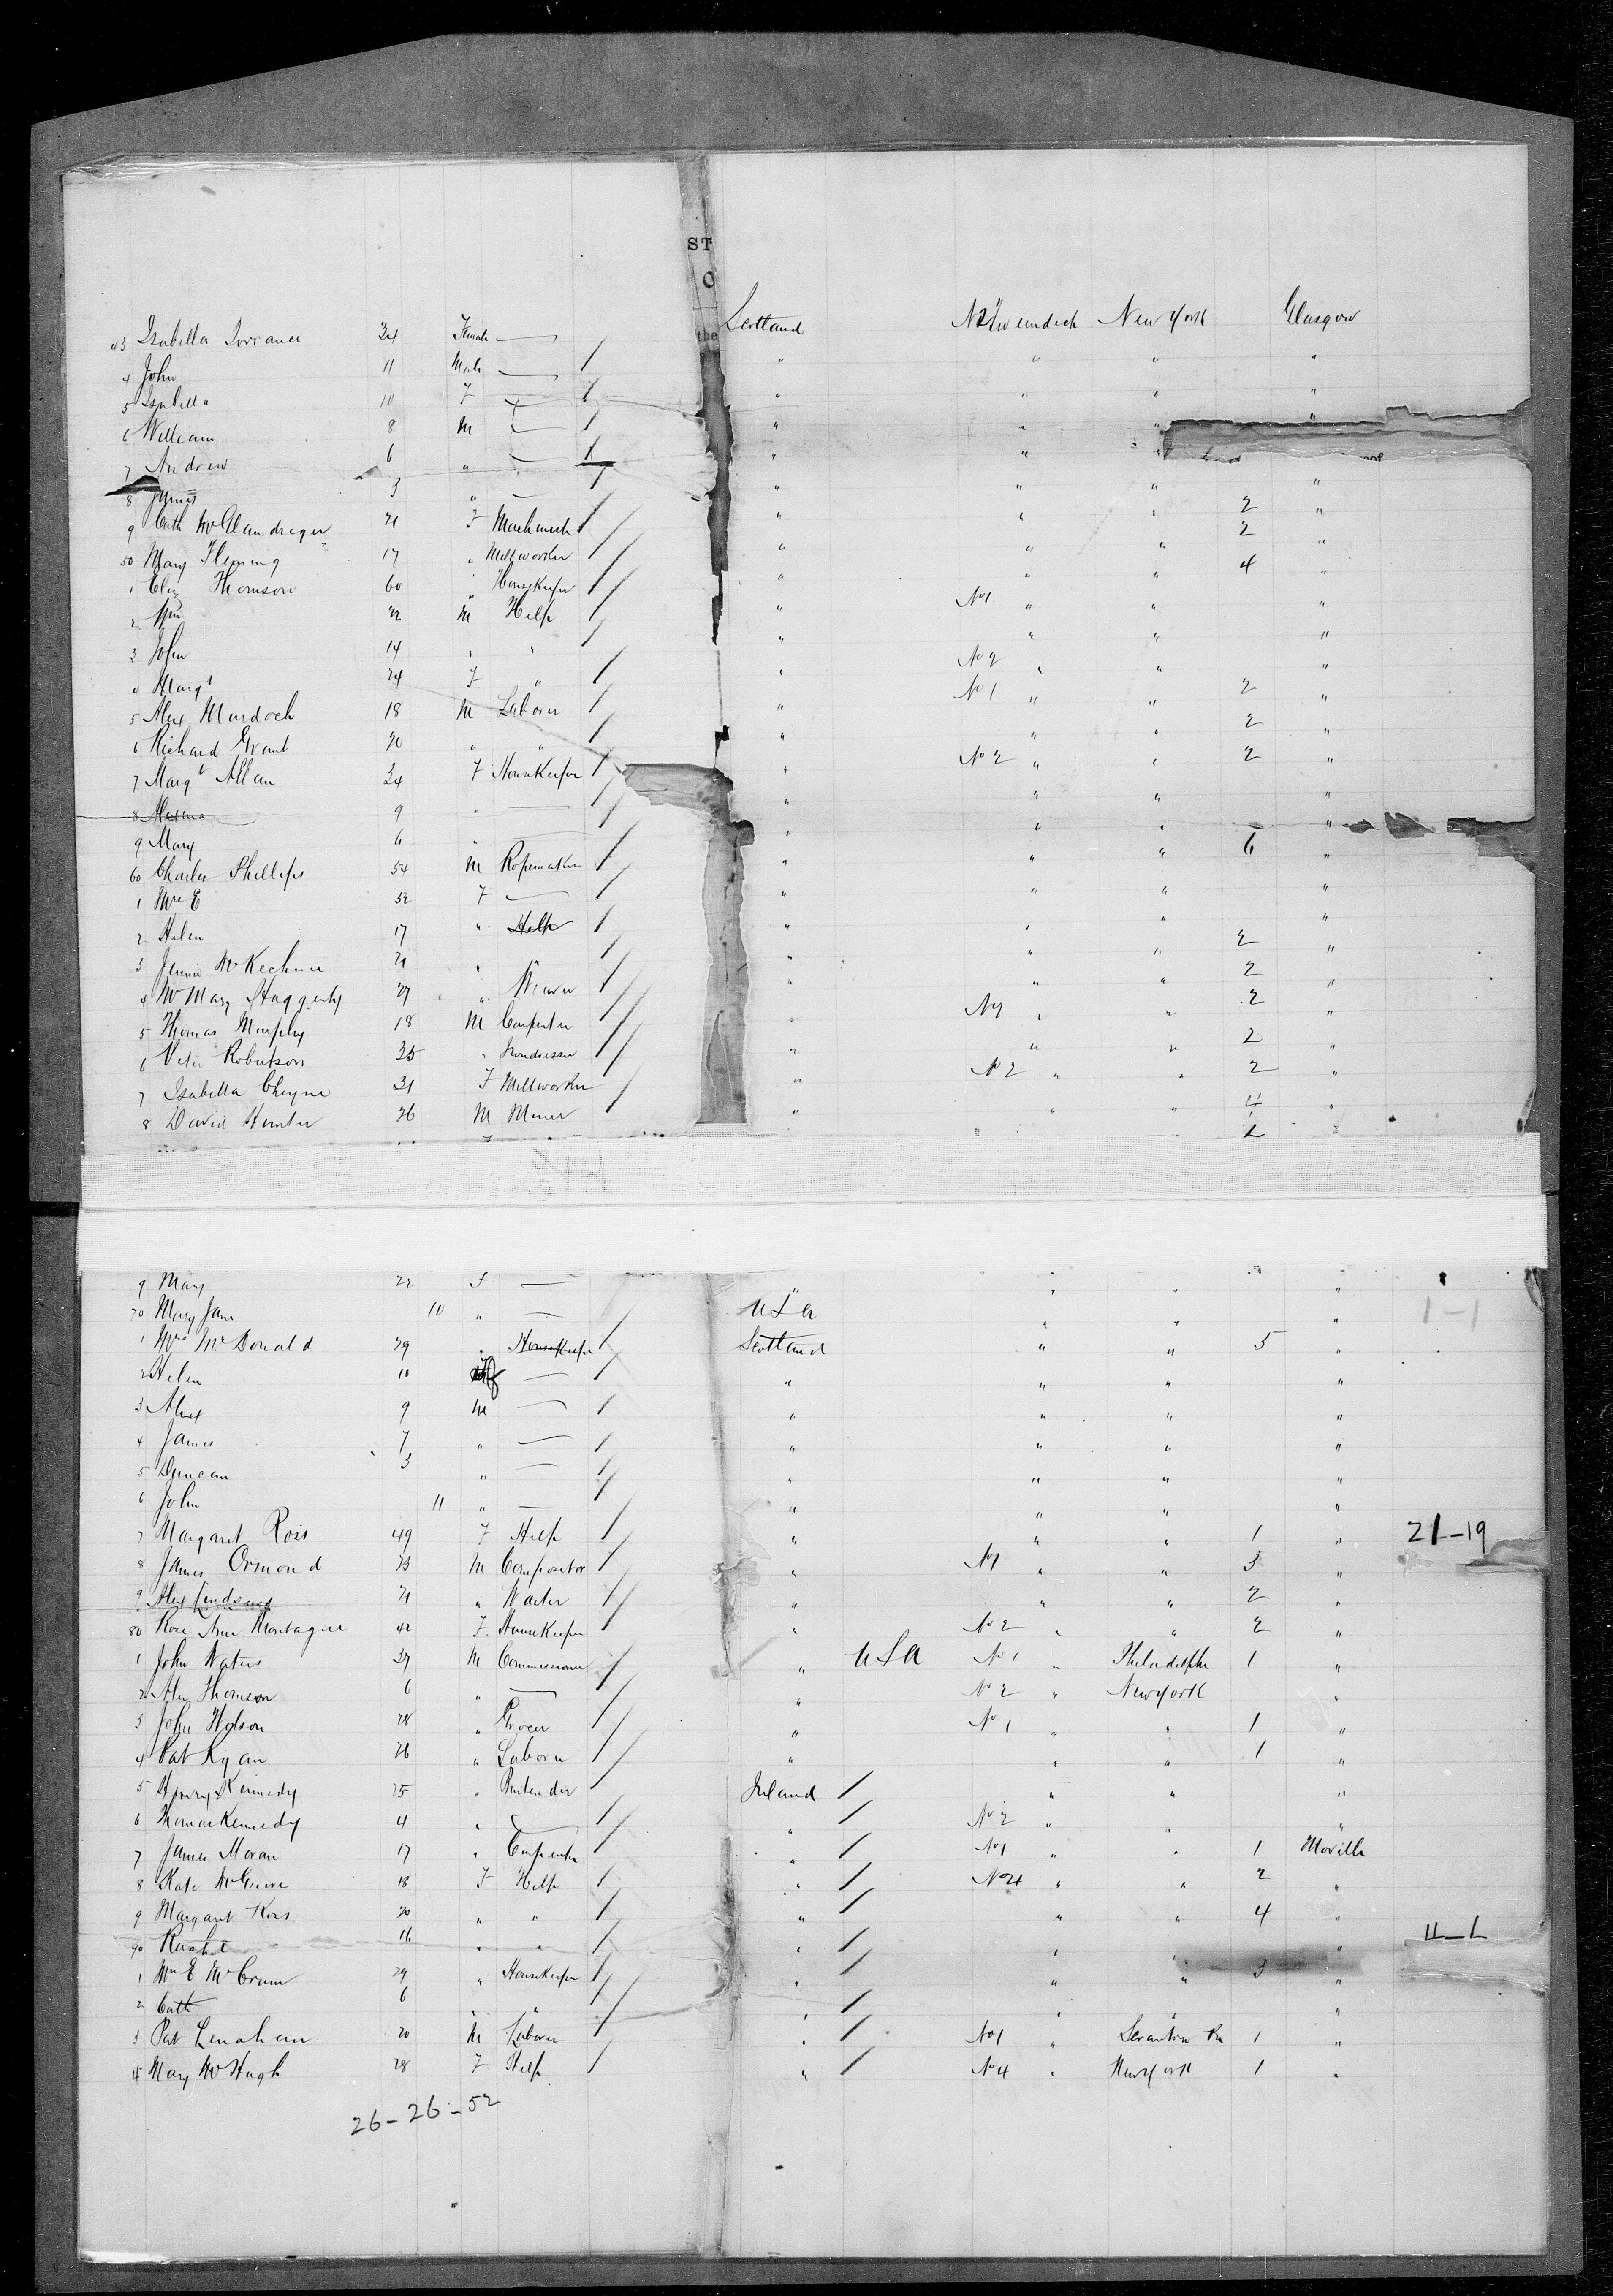 ST
O
the
43 Isabella Torrance 34 Female — Scotland No 2 Tweendeck New York Glasgow
4 John 11 Male — / " " " "
5 Isabella 10 F — / " " " "
6 William 8 M — / " " " "
7 Andrew 6 " — / " " "
8 James 3 " — / " " " "
9 Cath 21 F / " " " 2 "
50 Mary Fleming 17 " Millworker / " " " 2 "
1 Eliz Thomson 60 " Housekeeper / " " " 4 "
2 Wm 22 M Help / " No 1 " " "
3 John 14 " " / " " " "
4 Margt 24 F " / " No 2 " " "
5 Alex Murdoch 18 M Laborer / " No 1 " " 2 "
6 Richard Grant 20 " " / " " " 2 "
7 Margt Allan 34 F Housekeeper / " No 2 " " 2 "
8 9 " — / " " " "
9 Mary 6 " — / " " " "
60 Charles Phillips 54 M Ropemaker / " " " 6 "
1 Mrs E 52 F — / " " " "
2 Helen 17 " Help / " " " "
3 Jennie McKechnie 21 " " / " " " 2 "
4 Mrs Mary Haggerty 27 " Weaver / " " " 2 "
5 Thomas Murphy 18 M Carpenter / " No 1 " " 2 "
6 Peter Robertson 35 " / " " " 2 "
7 Isabella Cheyne 31 F Millworker / " No 2 " " 2 "
8 David Hunter 26 M Miner / " " " 4 "
9 Mary 22 F — / " " " "
70 Mary Jane 10 " — USA " " " 1-1
1 Mrs McDonald 29 " Housekeeper / Scotland " " 5 "
2 Helen 10 F — / " " " "
3 Alex 9 M — / " " " "
4 James 7 " — / " " " "
5 Duncan 3 " — / " " " "
6 John 11 " — / " " " "
7 Margaret Ross 49 F Help / " " " 1 " 21-19
8 James Ormond 23 M Compositor / " No 1 " " 3 "
9 Alex Lindsay 21 " Waiter / " " " 2 "
80 Rose Ann Montague 42 F Housekeeper / " No 2 " " 2 "
1 John Waters 37 M Commissioner / " USA No 1 " Philadelpha 1 "
2 Alex Thomson 6 " — / " No 2 " New York "
3 John Wylson 28 " Grocer / " No 1 " " 1 "
4 Pat Ryan 26 " Laborer / " " " 1 "
5 Henry Kennedy 25 " Bartender / Ireland / " " "
6 Thomas Kennedy 4 " — / " / No 2 " " "
7 James Moran 17 " Carpenter / " / No 1 " " 1 Moville
8 Kate 18 F Help / " / No 4 " " 2 "
9 Margaret Ross 20 " " / " / " " 4 "
90 Rachel 16 " " / " / " " " 11-1
1 Mrs E McCrum 29 " Housekeeper / " / " " 3 "
2 Cath 6 " " / " / " " "
3 Pat Lenahan 20 M Laborer / " / No 1 " Scranton Pa 1 "
4 Mary McHugh 28 F Help / " / No 4 " New York 1 "
26-26-52